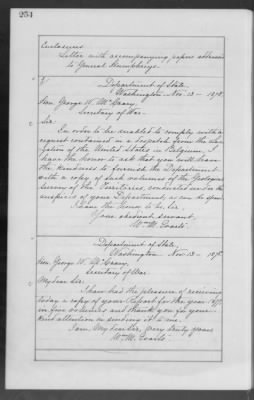 254
Enclosures
Letter with accompanying papers addressed
to General Humphreys.
Department of State,
Washington Nov. 13 - 1878.
Hon. George W. McCrary,
Secretary of War
Sir:
In order to be enabled to comply with a
request contained in a despatch from the Le-
gation of the United States in Belgium, I
have the honor to ask that you will have
the kindness to furnish the Department
with a copy of such volumes of the Geological
Survey of the Territories, conducted under the
auspices of your Department, as can be given.
I have the honor to be, Sir,
Your obedient servant,
Wm. M. Evarts.
Department of State,
Washington Nov. 13 - 1878.
Hon. George W. McCrary,
Secretary of War
My dear Sir:
I have had the pleasure of receiving
today a copy of your Report for the year
in five volumes and thank you for your
kind attention in sending it to me.
I am, My dear Sir, Very truly yours,
Wm. M. Evarts.